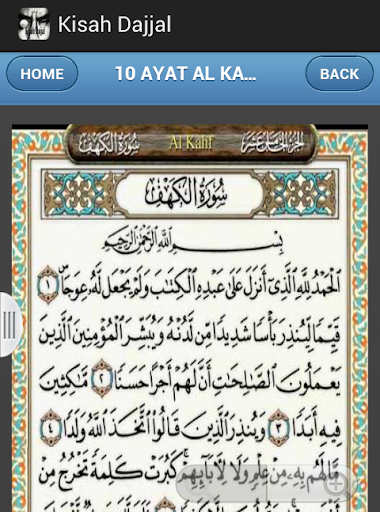 Kisah Dajjal
HOME
10 AYAT AL KA...
BACK
سُورَةُ الْكَهْفِ
Al Kahf
الجزء الخامس عشر
سُورَةُ الْكَهْفِ
بِسْمِ اللَّهِ الرَّحْمَٰنِ الرَّحِيمِ
الْحَمْدُ لِلَّهِ الَّذِي أَنزَلَ عَلَىٰ عَبْدِهِ الْكِتَابَ وَلَمْ يَجْعَل لَّهُ عِوَجًا ۜ ١
قَيِّمًا لِّيُنذِرَ بَأْسًا شَدِيدًا مِّن لَّدُنْهُ وَيُبَشِّرَ الْمُؤْمِنِينَ الَّذِينَ
يَعْمَلُونَ الصَّالِحَاتِ أَنَّ لَهُمْ أَجْرًا حَسَنًا ٢ مَّاكِثِينَ
فِيهِ أَبَدًا ٣ وَيُنذِرَ الَّذِينَ قَالُوا اتَّخَذَ اللَّهُ وَلَدًا ٤
مَّا لَهُم بِهِ مِنْ عِلْمٍ وَلَا لِآبَائِهِمْ ۚ كَبُرَتْ كَلِمَةً تَخْرُجُ مِنْ